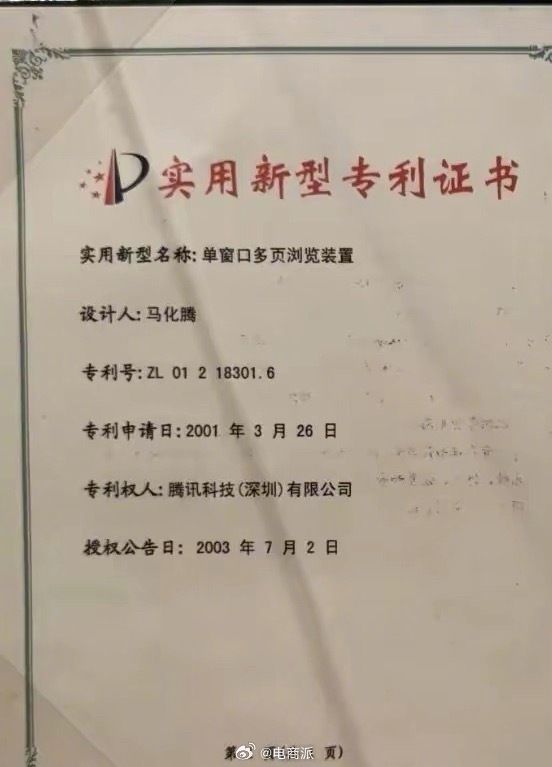 实用新型专利证书
实用新型名称:单窗口多页浏览装置
设计人:马化腾
专利号:ZL 01 2 18301.6
专利申请日:2001 年 3 月 26 日
专利权人:腾讯科技(深圳)有限公司
授权公告日: 2003 年 7 月 2 日
第 页)
@电商派